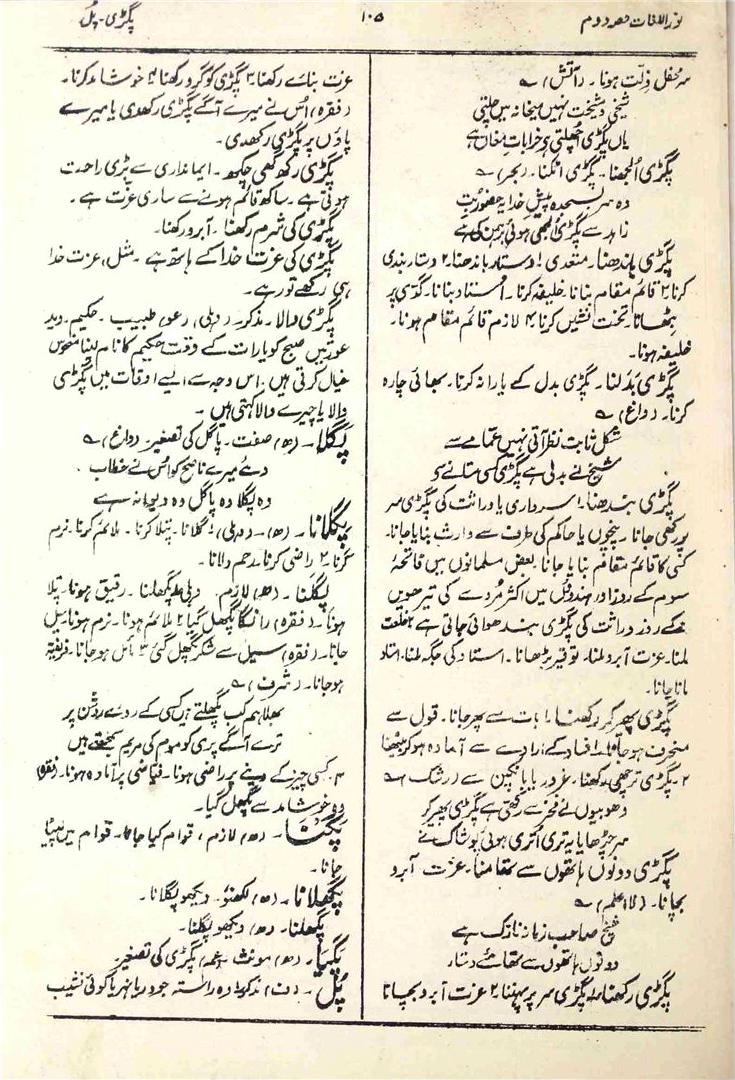 نور اللغات حصہ دوم
۱۰۵
پگڑی۔ پُل
سرِ محفل ذِلّت ہونا۔ (آتش) ؎
شیخی و مشیخت نہیں میخانہ میں چلتی
یاں پگڑی اُچھلتی ہے خراباتِ مغاں ہے
پگڑی اُلجھنا۔ پگڑی اٹکنا۔ (بحر) ؎
وہ سر بسجدہ پیشِ خدا یہ حضورِ بت
زاہد سے پگڑی اُلجھی ہوئی برہمن کی ہے
پگڑی باندھنا۔ متعدی ۱ دستار باندھنا۔ ۲ دستار بندی
کرنا ۳ قائم مقام بنانا۔ خلیفہ کرنا۔ اُستاد بنانا۔ گدّی پر
بٹھانا۔ تخت نشیں کرنا ۴ لازم قائم مقام ہونا۔
خلیفہ ہونا۔
پگڑی بَدَلنا۔ پگڑی بدل کے یارانہ کرنا۔ بھائی چارہ
کرنا۔ (داغ) ؎
شکل ثابت نظر آتی نہیں عمامے سے
شیخ نے بدلی ہے پگڑی کسی مستانے سے
پگڑی بندھنا۔ ۱ سرداری یا وراثت کی پگڑی سر
پر رکھی جانا۔ پنچوں یا حاکم کی طرف سے وارث بنایا جانا۔
کسی کا قائم مقام بنایا جانا۔ بعض مسلمانوں میں فاتحۂ
سوم کے روز اور ہندوؤں میں اکثر مُردے کی تیرھویں
کے روز وراثت کی پگڑی بندھوائی جاتی ہے ۲ خلعت
ملنا۔ عزت آبرو ملنا۔ توقیر بڑھانا۔ استاد کی جگہ ملنا۔ استاد
مانا جانا۔
پگڑی پھیر کر رکھنا۔ ۱ بات سے پھر جانا۔ قول سے
منحرف ہو جانا۔ فساد کے ارادے سے آمادہ ہو کر بیٹھنا
۲۔ پگڑی ترچھی رکھنا۔ غرور یا بانکپن سے (رشک) ؎
دھوبیوں نے فخر سے رکھی ہے پگڑی پھیر کر
سر چڑھایا یہ تری اُتری ہوئی پوشاک نے
پگڑی دونوں ہاتھوں سے تھامنا۔ عزت آبرو
بچانا۔ (لااعلم) ؎
شیخ صاحب زمانہ نازک ہے
دونوں ہاتھوں سے تھامئے دستار
پگڑی رکھنا۔ ۱ پگڑی سر پر پہننا ۲ عزت آبرو بچانا
عزت بنائے رکھنا ۳ پگڑی کو گرو رکھنا ۴ خوشامد کرنا۔
(فقرہ) اُس نے میرے آگے پگڑی رکھدی یا میرے
پاؤں پر پگڑی رکھدی۔
پگڑی رکھ گھی چکھ۔ ایمانداری سے بڑی راحت
ہوتی ہے۔ ساکھ قائم ہونے سے ساری عزت ہے۔
پگڑی کی شرم رکھنا۔ آبرو رکھنا۔
پگڑی کی عزت خدا کے ہاتھ ہے۔ مثل، عزت خدا
ہی رکھے تو رہے۔
پگڑی والا۔ مذکر۔ (دہلی) (عو) طبیب۔ حکیم۔ وید
عورتیں صبح کو یا رات کے وقت حکیم کا نام لینا منحوس
خیال کرتی ہیں۔ اس وجہ سے ایسے اوقات میں پگڑی
والا یا چیرے والا کہتی ہیں۔
پگلا۔ (ھ) صفت۔ پاگل کی تصغیر۔ (داغ) ؎
دے میرے ناصح کو اس نے خطاب
وہ پگلا وہ پاگل وہ دیوانہ ہے
پگلانا۔ (ھ)۔ (دہلی) ۱ گلانا۔ پتلا کرنا۔ ملائم کرنا۔ نرم
کرنا۔ ۲ راضی کرنا۔ رحم دلانا۔
پگلنا۔ (ھ) لازم۔ دہلی پگھلنا۔ رقیق ہونا۔ پتلا
ہونا۔ (فقرہ) رانگا پگھل گیا ۲ ملائم ہونا۔ نرم ہونا۔ سیل
جانا۔ (فقرہ) سیل سے شکر پگھل گئی ۳ مائل ہو جانا۔ فریفتہ
ہو جانا۔ (شرف) ؎
بھلا ہم کب پگھلتے ہیں کسی کے روئے روشن پر
ترے آگے پری کو موم کی مریم سمجھتے ہیں
۴۔ کسی چیز کے دینے پر راضی ہونا۔ فیاضی پر آمادہ ہونا۔ (فقرہ)
وہ خوشامد سے پگھل گیا۔
پگنا۔ (ھ) لازم، قوام کیا جانا۔ قوام میں لپٹایا
جانا۔
پگھلانا۔ (ھ) لکھنؤ۔ دیکھو پگلانا۔
پگھلنا۔ (ھ) دیکھو پگلنا۔
پگیا۔ (ھ) مونث پگڑی کی تصغیر۔
پُل۔ (ف) مذکر۔ ۱ وہ راستہ جو دریا نہر یا کوئی نشیب